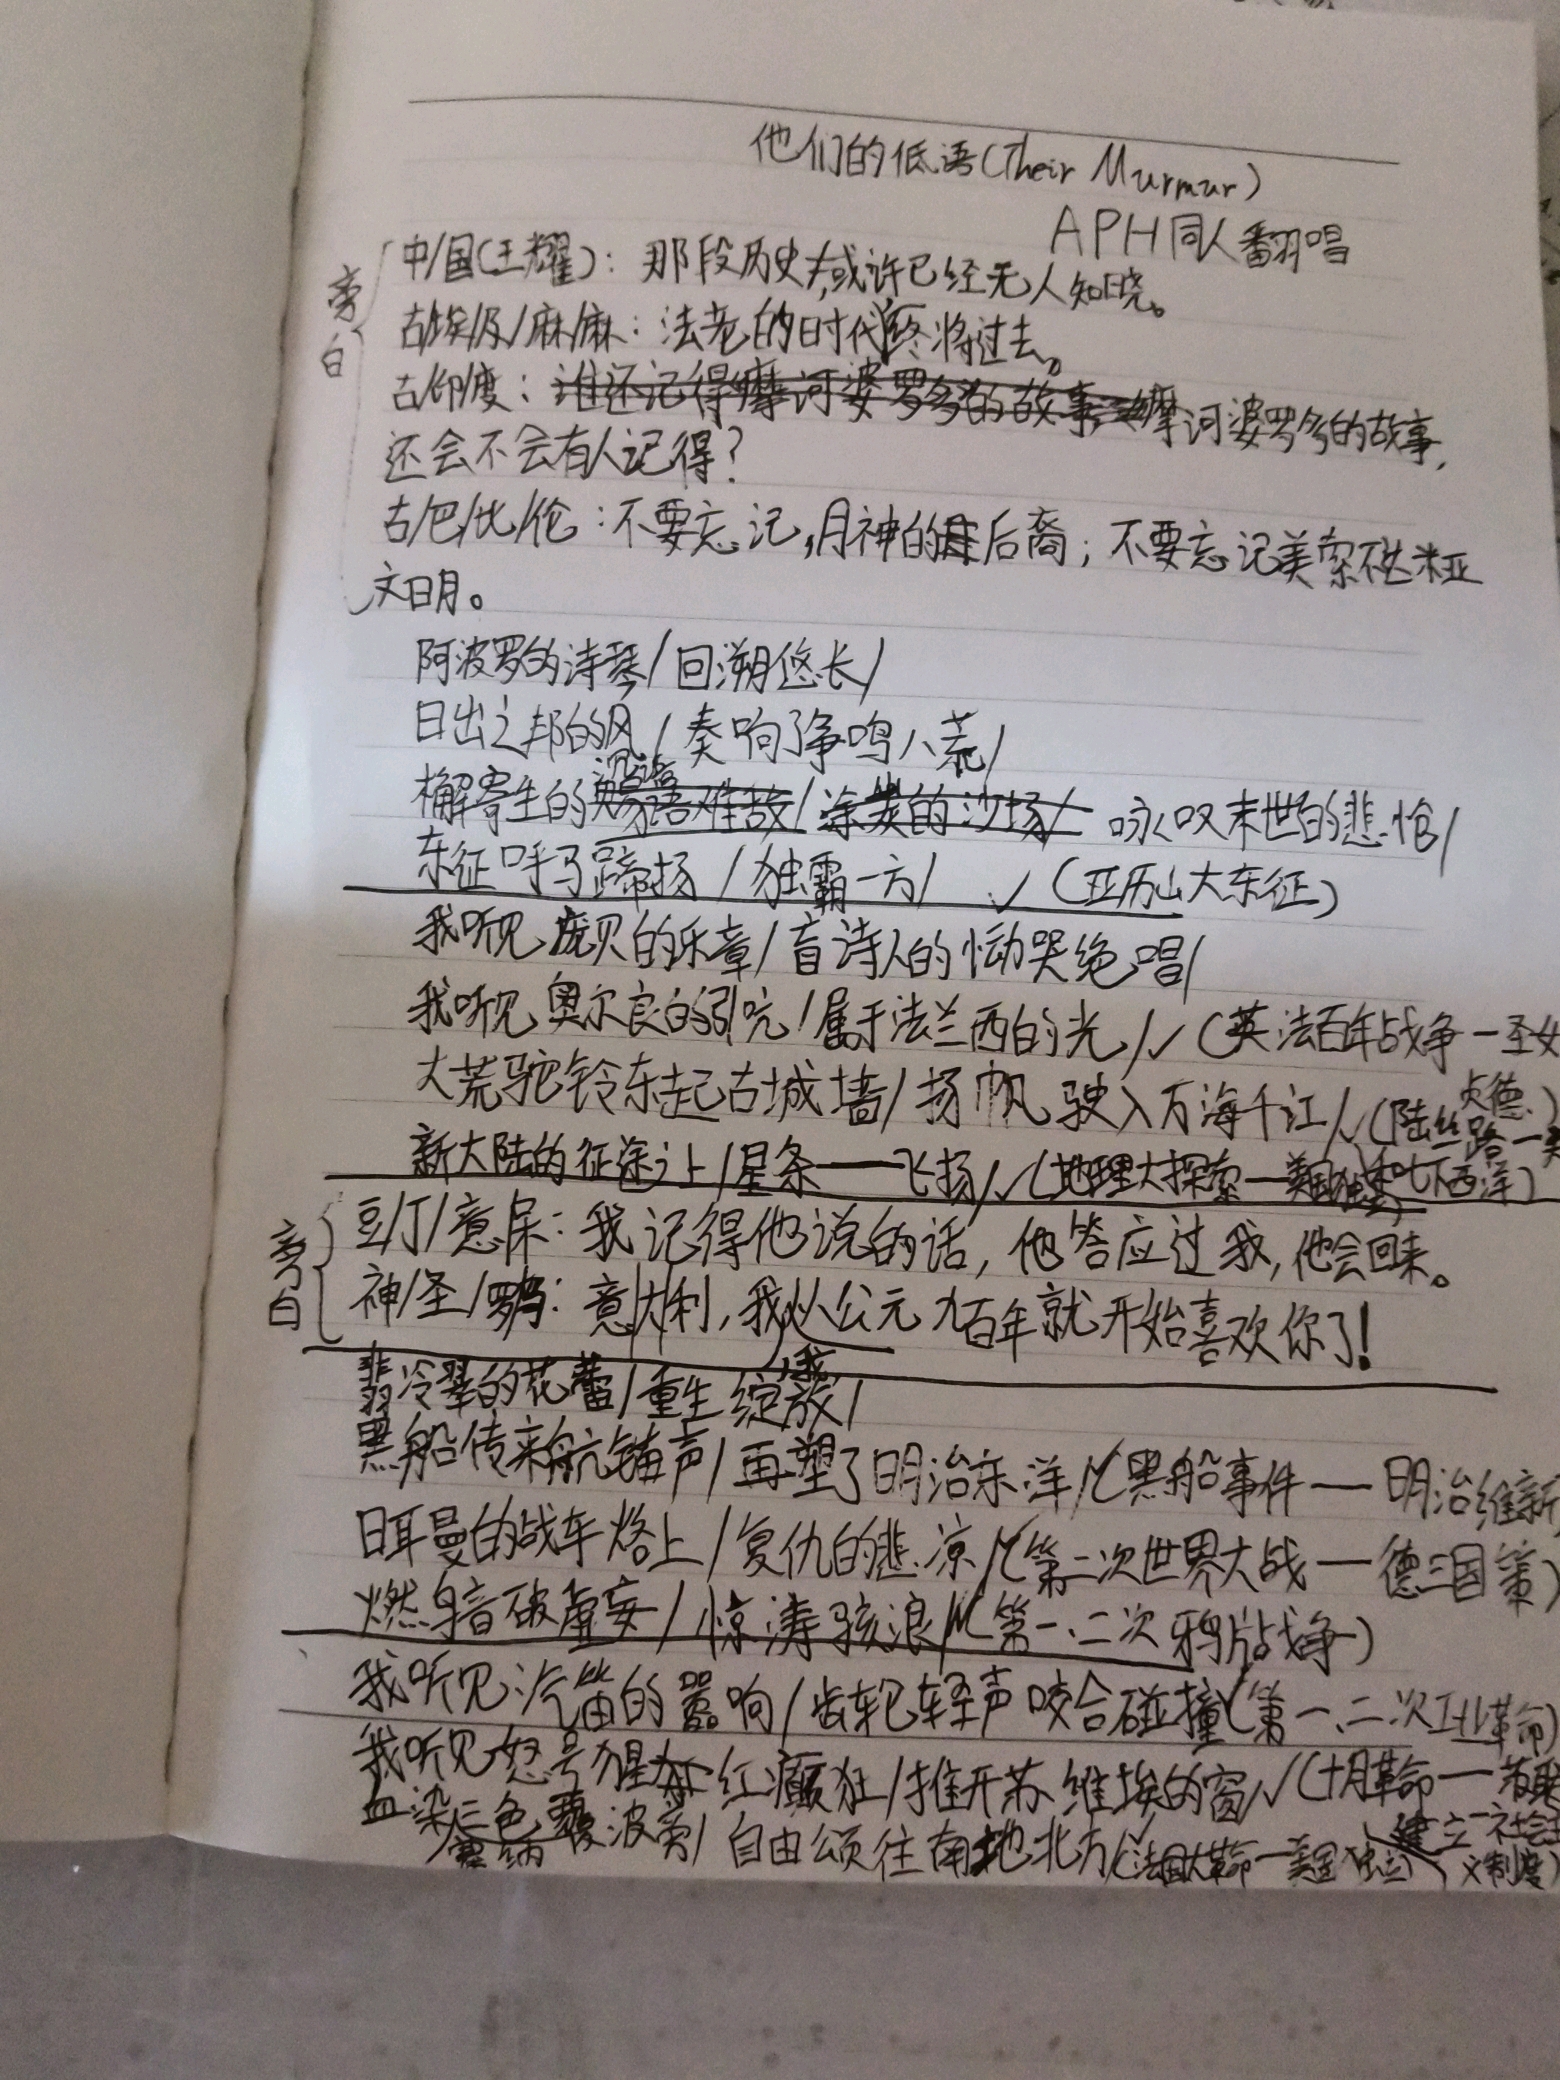 他们的低语(Their Murmur)
APH同人翻唱
旁白
中/国(王耀)：那段历史,或许已经无人知晓。
古/埃/及/麻/麻：法老的时代终将过去。
古/印/度：谁还记得摩诃婆罗多的故事 摩诃婆罗多的故事,
还会不会有人记得?
古/巴/比/伦：不要忘记,月神的后裔；不要忘记美索不达米亚
文明。
阿波罗的诗琴/回溯悠长/
日出之邦的风/奏响了争鸣八荒/
槲寄生的 咏叹末世的悲怆/
东征呼马蹄扬/独霸一方/ ✓(亚历山大东征)
我听见庞贝的乐章/盲诗人的恸哭绝唱/
我听见奥尔良的引吭/属于法兰西的光/✓(英法百年战争一圣女
贞德)
大荒驼铃东起古城墙/扬帆驶入万海千江/✓(陆丝路一
下西洋)
新大陆的征途上/星条——飞扬/✓(地理大探索一
旁白
豆/丁/意/呆：我记得他说的话,他答应过我,他会回来。
神/圣/罗/马：意大利,我从公元九百年就开始喜欢你了!
翡冷翠的花蕾/重生绽放/
黑船传来航锚声/再塑了明治东洋/✓(黑船事件——明治维新
日耳曼的战车烙上/复仇的悲凉/✓(第二次世界大战——德三国策)
燃身音破虚妄/惊涛骇浪/✓(第一、二次鸦片战争)
我听见汽笛的嚣响/齿轮轻声咬合碰撞✓(第一、二次工业革命)
我听见怒号猩红癫狂/推开苏维埃的窗/✓(十月革命一苏联
建立一社会主
义制度)
血染三色 波/自由颂往南地北方/✓(法国大革命一美国独立)
塞纳